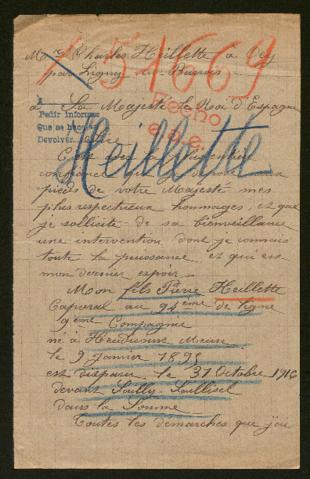 Mr Charles Heillette a
par Ligny en Barrois
151669
à Sa Majesté le Roi d'Espagne
Pedir informes
Que se busque
Devolver
Hecho
Heillette
C'est avec
pieds de votre Majesté mes
plus respectueux hommages, et que
je sollicite de sa bienveillance
une intervention dont je connais
toute la puissance et qui est
mon dernier espoir.
Mon fils Pierre Heillette
Caporal au 94ème de ligne
9ème Compagnie
né à Heudicourt Meuse
le 9 Janvier 1895
est disparu le 31 Octobre 1916
devant Sailly-Saillisel
dans la Somme
Toutes les démarches que j'ai